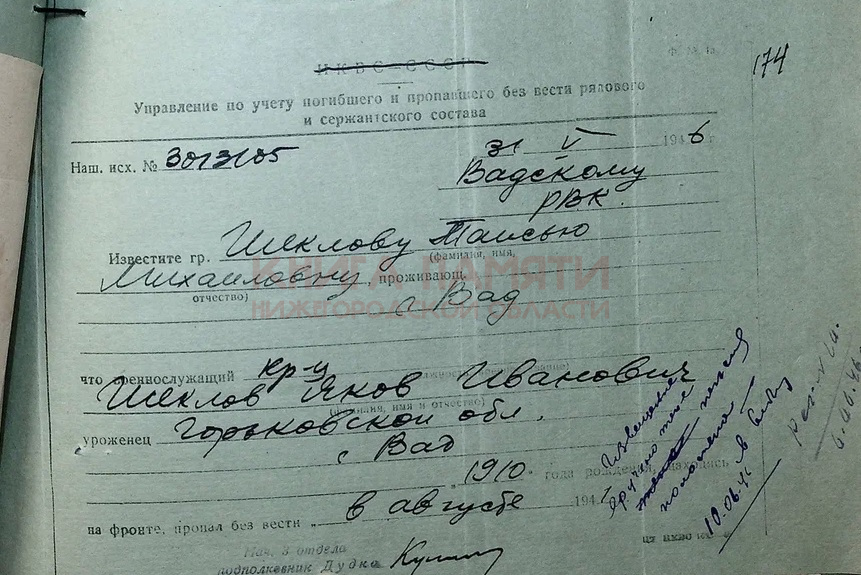 Ф. № 1а
174
НКВС—СССР
Управление по учету погибшего и пропавшего без вести рядового
и сержантского состава
Наш. исх. № 3013105
31 V 1946 г.
Вадскому
РВК.
Известите гр. Шеклову Таисью
(фамилия, имя,
Михайловну, проживающ.
отчество)
с Вад
КНИГА ПАМЯТИ
НИЖЕГОРОДСКОЙ ОБЛАСТИ
что военнослужащий кр-ц
Шеклов Яков Иванович
(фамилия, имя и отчество)
уроженец Горьковской обл.
с Вад
1910 года рождения, находясь
на фронте, пропал без вести „ в августе 194
Извещение
вручено пенсия
положена
10.06.46
6.06.46
Нач. 3 отдела
подполковник Дудка